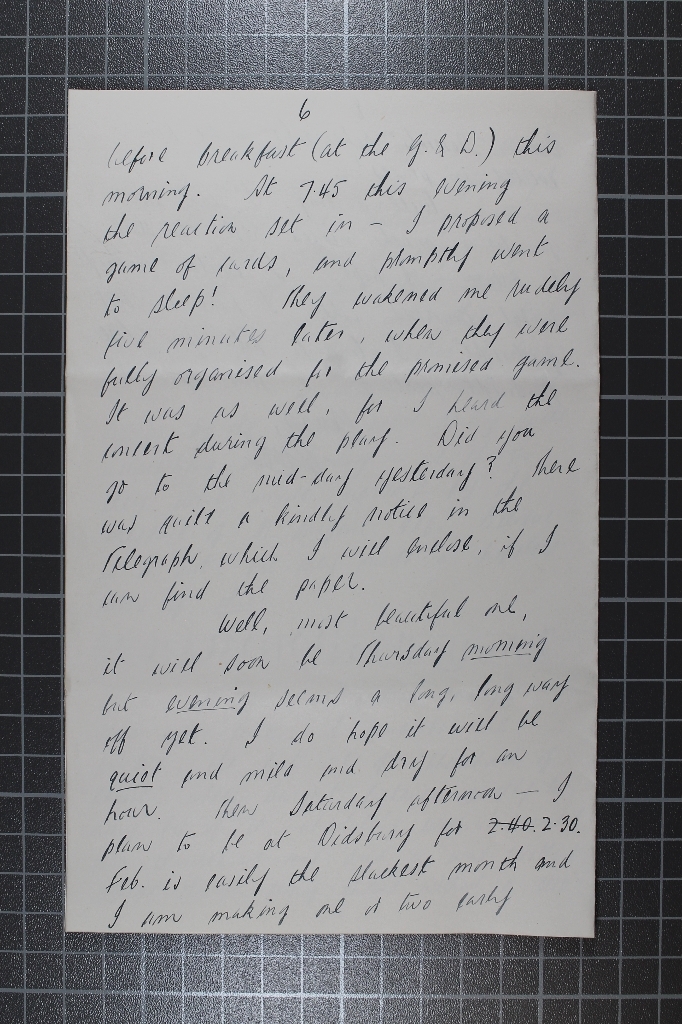 6
before breakfast (at the G. & D.) this
morning. At 7.45 this evening
the reaction set in – I proposed a
game of cards, and promptly went
to sleep! They wakened me rudely
five minutes later, when they were
fully organised for the promised game.
It was as well, for I heard the
concert during the play. Did you
go to the mid-day yesterday? There
was quite a kindly notice in the
Telegraph, which I will enclose, if I
can find the paper.
Well, most beautiful one,
it will soon be Thursday morning
but evening seems a long, long way
off yet. I do hope it will be
quiet and mild and dry for an
hour. Then Saturday afternoon – I
plan to be at Didsbury for 2.40. 2.30.
Feb. is easily the slackest month and
I am making one or two early